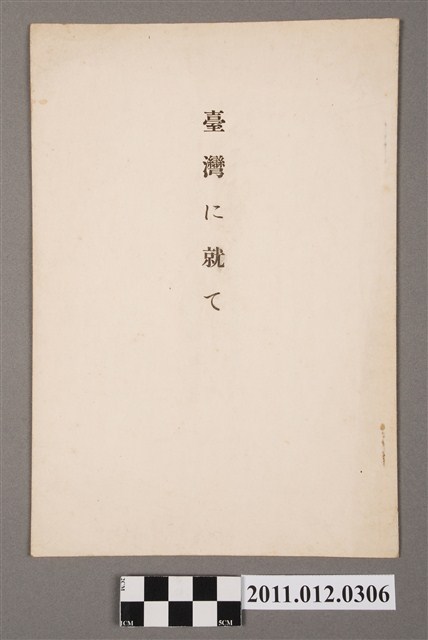 臺灣に就て
2CM
1CM
5CM
2011.012.0306